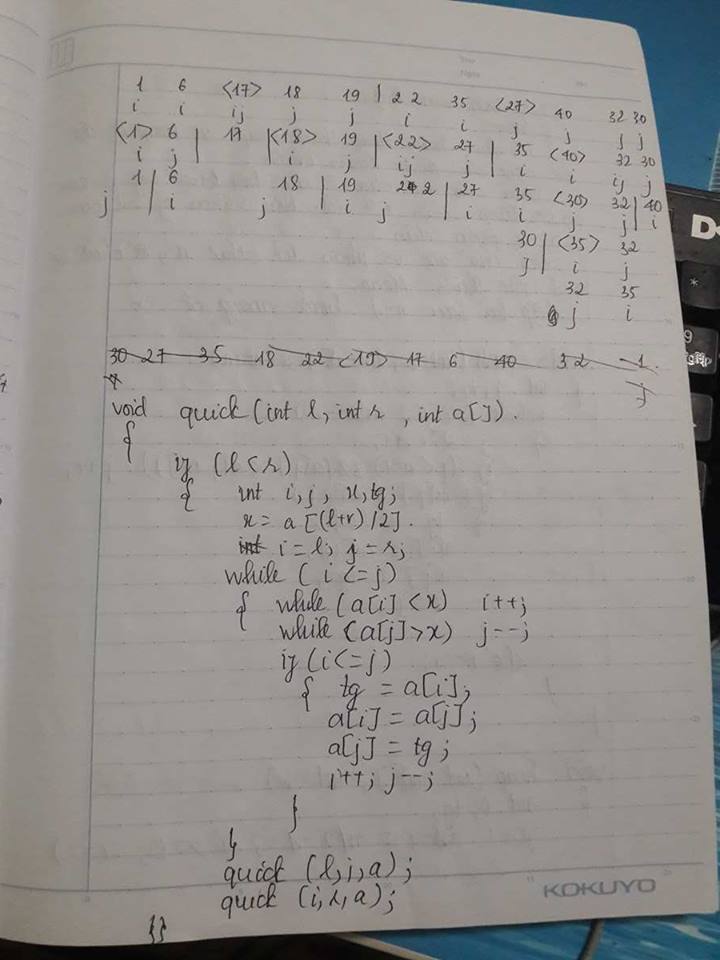 1 6 <17> 18 19 | 22 35 <27> 40 32 30
i i ij j j i i j j j j
<1> 6 | 17 | <18> 19 | <22> 27 | 35 <40> 32 30
i j i j ij j i i ij j
1 | 6 18 | 19 2 | 27 35 <30> 32 | 40
j i j i j i i j j i
30 | <35> 32
j i j
32 35
j i
30 27 35 18 22 <19> 17 6 40 32 1
j
void quick (int l, int r, int a[]).
{
if (l<r)
{ int i,j, x,tg;
x = a[(l+r)/2].
int i=l; j=r;
while (i<=j)
{ while (a[i]<x) i++;
while (a[j]>x) j--;
if (i<=j)
{ tg = a[i];
a[i] = a[j];
a[j] = tg;
i++; j--;
}
}
quick (l,j,a);
quick (i,r,a);
}}
KOKUYO
D
*
9